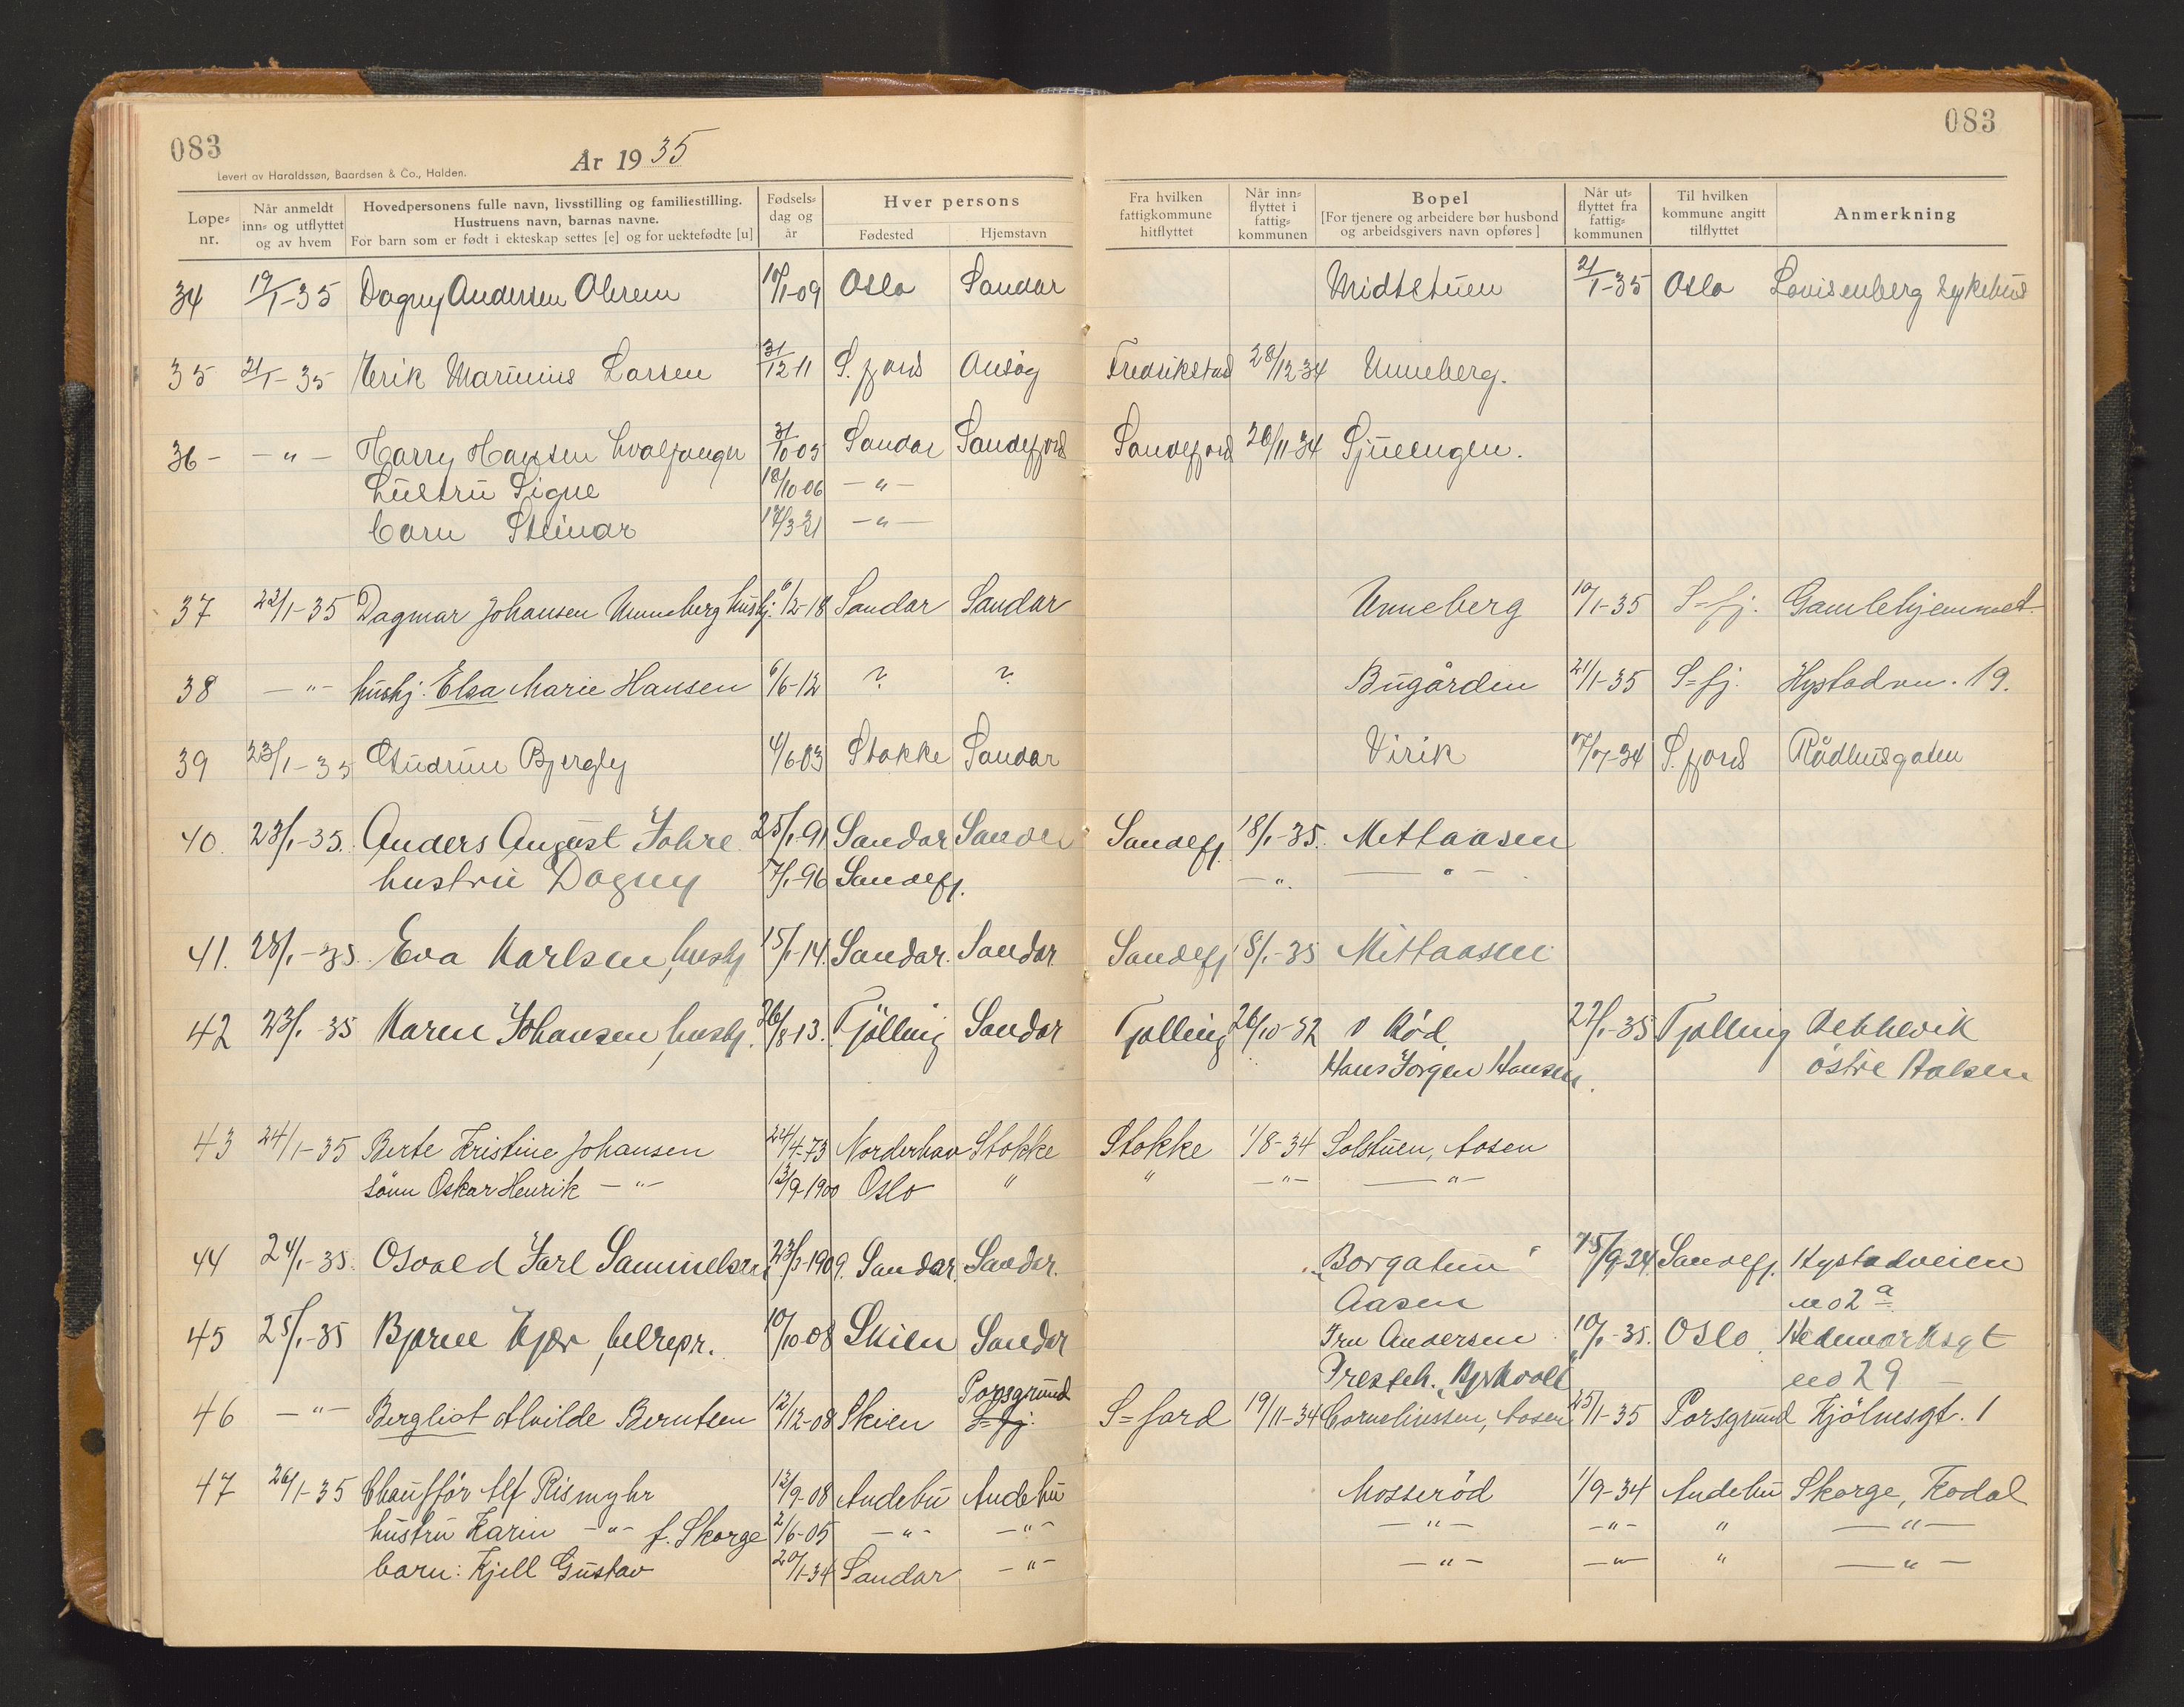 083
083
År 1935
Levert av Haraldssøn, Baardsen & Co., Halden.
Løpe-nr. Når anmeldt inn- og utflyttet og av hvem Hovedpersonens fulle navn, livsstilling og familiestilling. Hustruens navn, barnas navne. For barn som er født i ekteskap settes [e] og for uektefødte [u] Fødsels-dag og år Hver persons Fødested Hjemstavn Fra hvilken fattigkommune hitflyttet Når inn-flyttet i fattig-kommunen Bopel [For tjenere og arbeidere bør husbond og arbeidsgivers navn opføres] Når ut-flyttet fra fattig-kommunen Til hvilken kommune angitt tilflyttet Anmerkning
34 19/1-35 Dagny Andersen 10/1-09 Oslo Sandar Midtstuen 21/1-35 Oslo Lovisenberg sykehus
35 21/1-35 Erik Marinius Larsen 31/12-11 S.fjord Fredrikstad 28/12-34 Unneberg.
36- -"- Harry Hansen hvalfanger 31/10-05 Sandar Sandefjord Sandefjord 26/11-34
hustru Signe 18/10-06 -"-
barn Steinar -"-
37 22/1-35 Dagmar Johansen Unneberg hushj. 6/12-18 Sandar Sandar Unneberg 10/1-35 S=fj. Gamlehjemmet
38 -"- hushj. Elsa Marie Hansen 6/6-12 ? ? Bugården 21/1-35 S=fj. Hystadvn. 19.
39 23/1-35 Gudrun Bjergly 4/6-03 Stokke Sandar Virik S.fjord Rådhusgaten
40. 23/1-35. Anders August Johre 25/1-91 Sandar Sandar Sandefj. 18/1-35. Metlaasen
hustru Dagny 7/1-96 Sandefj. -"- -"-
41. 23/1-35. Eva Karlsen, hushj 15/1-14. Sandar. Sandar. Sandefj 18/1-35 Mitlaasen
42 23/1-35 Karen Johansen, hushj. 26/8-13. Tjølling Sandar Tjølling 26/10-32 Rød 22/1-35 Tjølling
Hans Jørgen Hansen. østre Halsen
43 24/1-35 Berte Kristine Johansen 24/4-73 Norderhov Stokke Stokke 1/8-34 Solstuen, Aasen
sønn Oskar Henrik -"- 13/9-1900 Oslo " " -"- -"-
44 24/1-35. Osvald Jarl Samuelsen 1909. Sandar. Sandar. "Borgatun" 15/9-34. Sandefj. Hystadveien
Aasen no 2 a
45 25/1-35 Bjarne Kjær, belrepr. 10/10-08 Skien Sandar Fru Andersen 10/1-35. Oslo. Hedmarksgt
no 29
46 -"- Bergliot Alvilde Berntsen 12/12-08 Skien Porsgrund S=fj. S=fjord 19/11-34 Corneliussen, Aasen 25/1-35 Porsgrund Kjølnesgt. 1
47 26/1-35 Chauffør Alf Rismyhr 13/9-08 Andebu Andebu Mosserød 1/9-34 Andebu Skorge, Kodal
hustru Karin -"- f. Skorge 2/6-05 -"- -"- -"- -"- " -"-
barn: Kjell Gustav 20/1-34 Sandar -"- -"- -"- " -"-